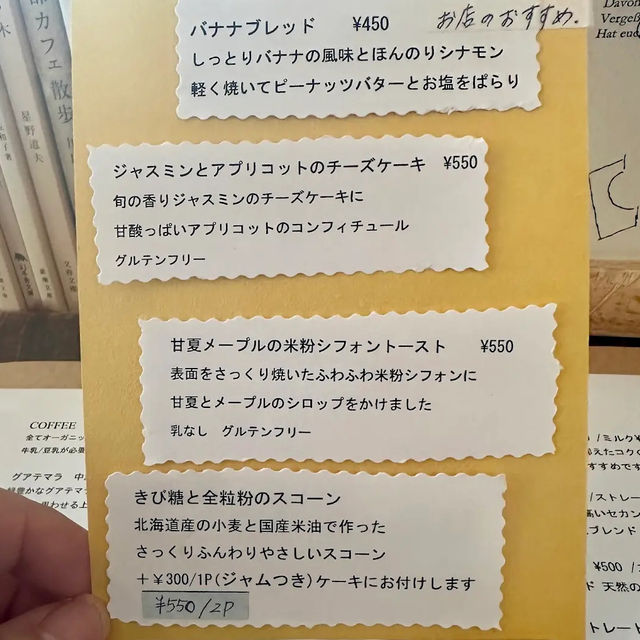 お店のおすすめ。
バナナブレッド ¥450
しっとりバナナの風味とほんのりシナモン
軽く焼いてピーナッツバターとお塩をぱらり
ジャスミンとアプリコットのチーズケーキ ¥550
旬の香りジャスミンのチーズケーキに
甘酸っぱいアプリコットのコンフィチュール
グルテンフリー
甘夏メープルの米粉シフォントースト ¥550
表面をさっくり焼いたふわふわ米粉シフォンに
甘夏とメープルのシロップをかけました
乳なし グルテンフリー
きび糖と全粒粉のスコーン
北海道産の小麦と国産米油で作った
さっくりふんわりやさしいスコーン
+¥300/1P(ジャムつき)ケーキにお付けします
¥550/2P
カフェ散歩
星野道夫
COFFEE
全てオーガニッ
牛乳/豆乳が必要
グアテマラ 中
豊かなグアテマ
Davon
Vergeß
Hat euc
/ミルク
/ストレー
ブレンド
¥500 /
天然の
トレート